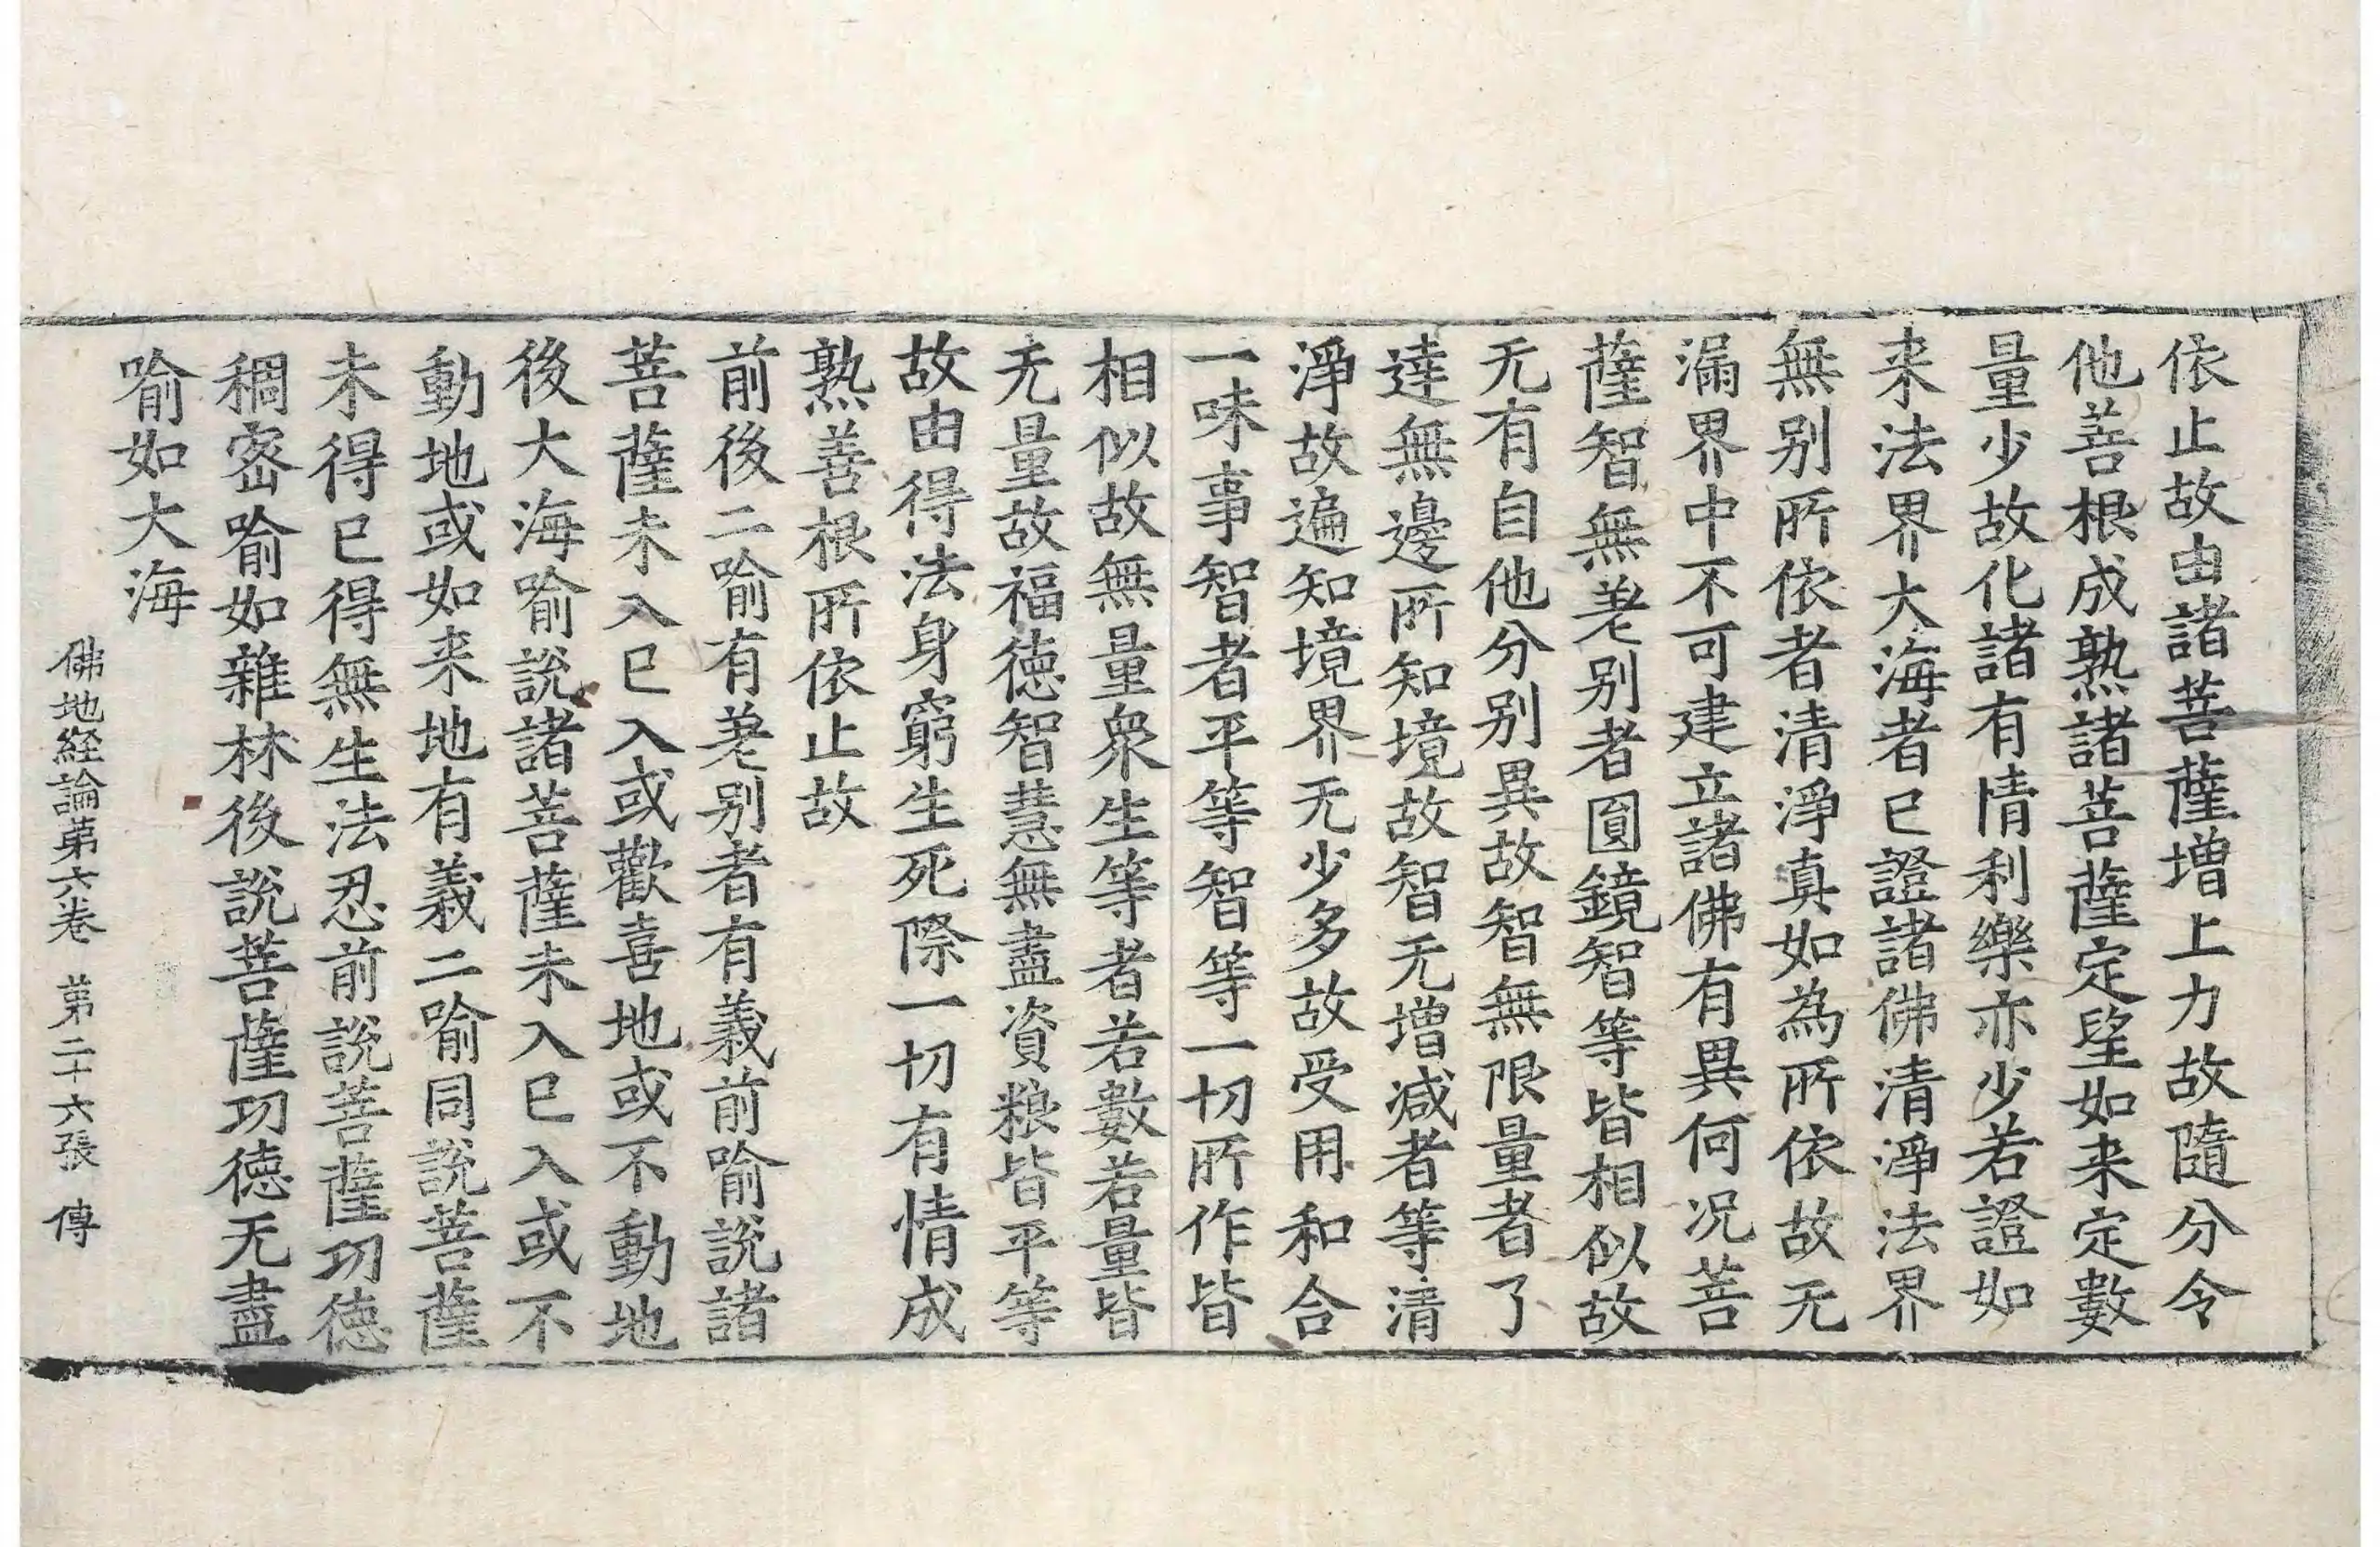 依止故由諸菩薩增上力故隨分令
他善根成熟諸菩薩定望如来定數
量少故化諸有情利樂亦少若證如
来法界大海者已證諸佛清淨法界
無别所依者清淨真如為所依故无
漏界中不可建立諸佛有異何况菩
薩智無差别者圓鏡智等皆相似故
无有自他分别異故智無限量者了
達無邊所知境故智无增减者等清
淨故遍知境界无少多故受用和合
一味事智者平等智等一切所作皆
相似故無量衆生等者若數若量皆
无量故福德智慧無盡資粮皆平等
故由得法身窮生死際一切有情成
熟善根所依止故
前後二喻有差别者有義前喻說諸
菩薩未入已入或歡喜地或不動地
後大海喻說諸菩薩未入已入或不
動地或如来地有義二喻同說菩薩
未得已得無生法忍前說菩薩功德
稠密喻如雜林後說菩薩功德无盡
喻如大海
佛地経論第六卷 第二十六張 傳